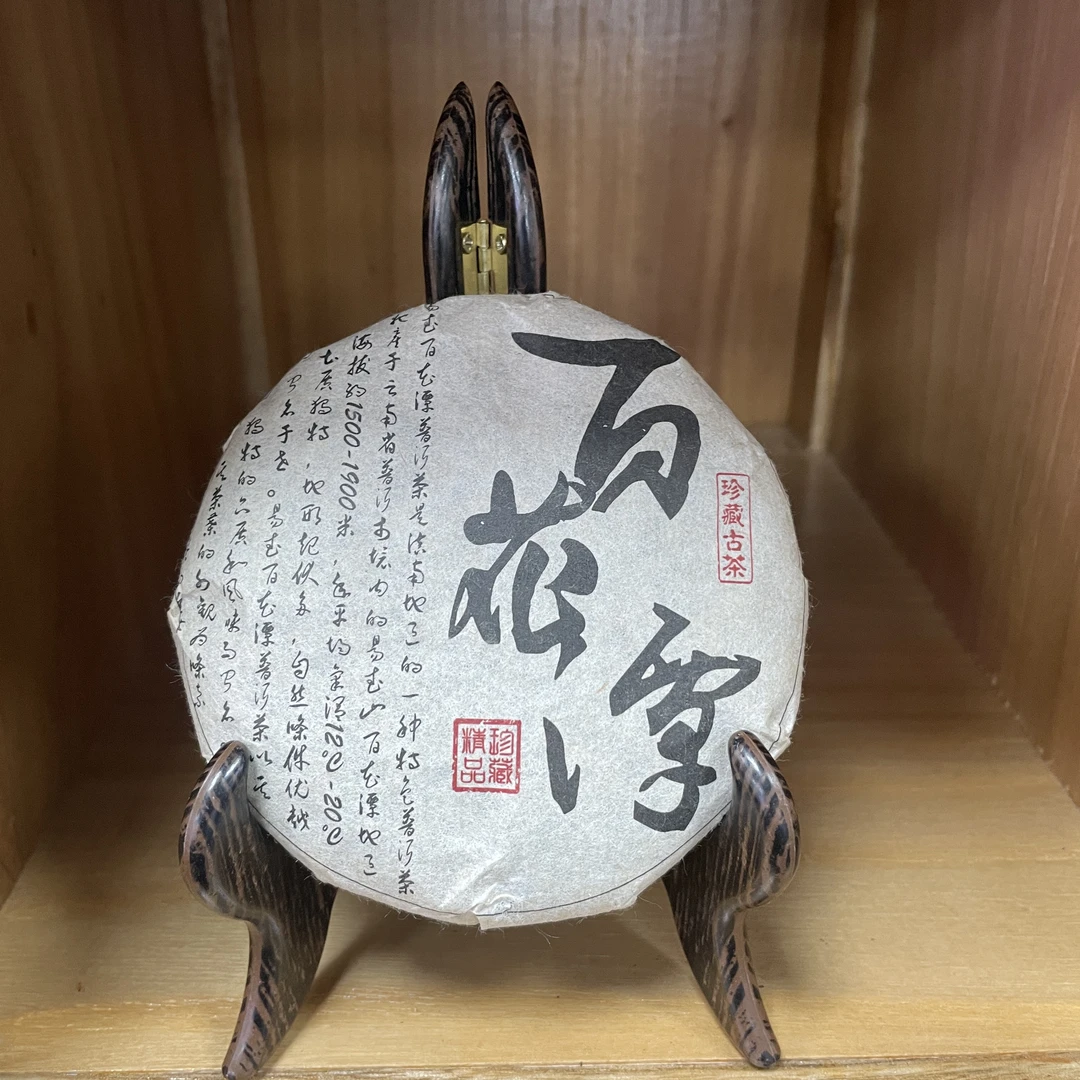 百花潭
珍藏古茶
珍藏精品
易武百花潭普洱茶是滇南地区的一种特色普洱茶
产于云南省普洱市境内的易武山百花潭地区
海拔约1500-1900米，年平均氣温12℃-20℃
土质独特，地形起伏多，自然條件优越
闻名于世。易武百花潭普洱茶以其
独特的品质和风味而闻名
其茶葉的外觀为條索